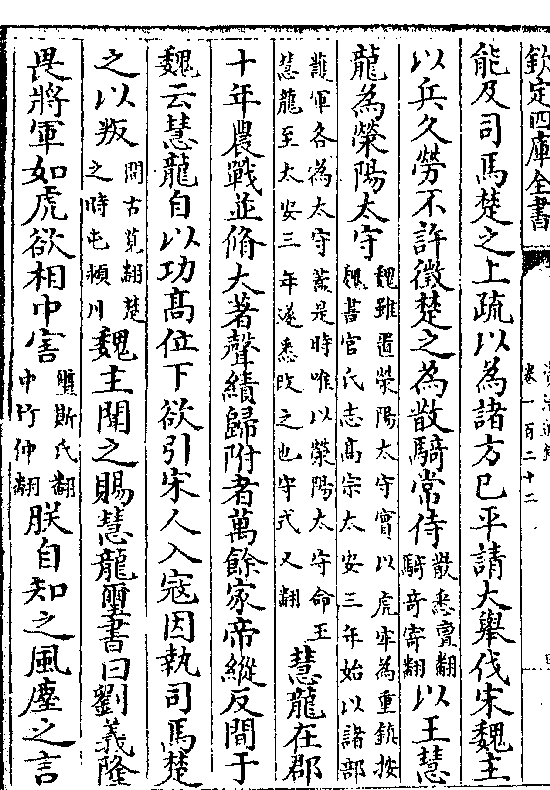 欽定四庫全書
卷一百二十二
能及司馬楚之上疏以為諸方已平請大舉伐宋魏主
以兵久勞不許徵楚之為散騎常侍散悉亶翻騎奇寄翻以王慧
龍為滎陽太守魏雖置滎陽太守實以虎牢為重鎮按魏書官氏志高宗太安三年始以諸部
護軍各為太守蓋是時唯以滎陽太守命王慧龍至太安三年遂悉改之也守式又翻慧龍在郡
十年農戰並脩大著聲績歸附者萬餘家帝縱反間于
魏云慧龍自以功高位下欲引宋人入寇因執司馬楚
之以叛間古莧翻楚之時屯潁川魏主聞之賜慧龍璽書曰劉義隆
畏將軍如虎欲相中害璽斯氏翻中竹仲翻朕自知之風塵之言